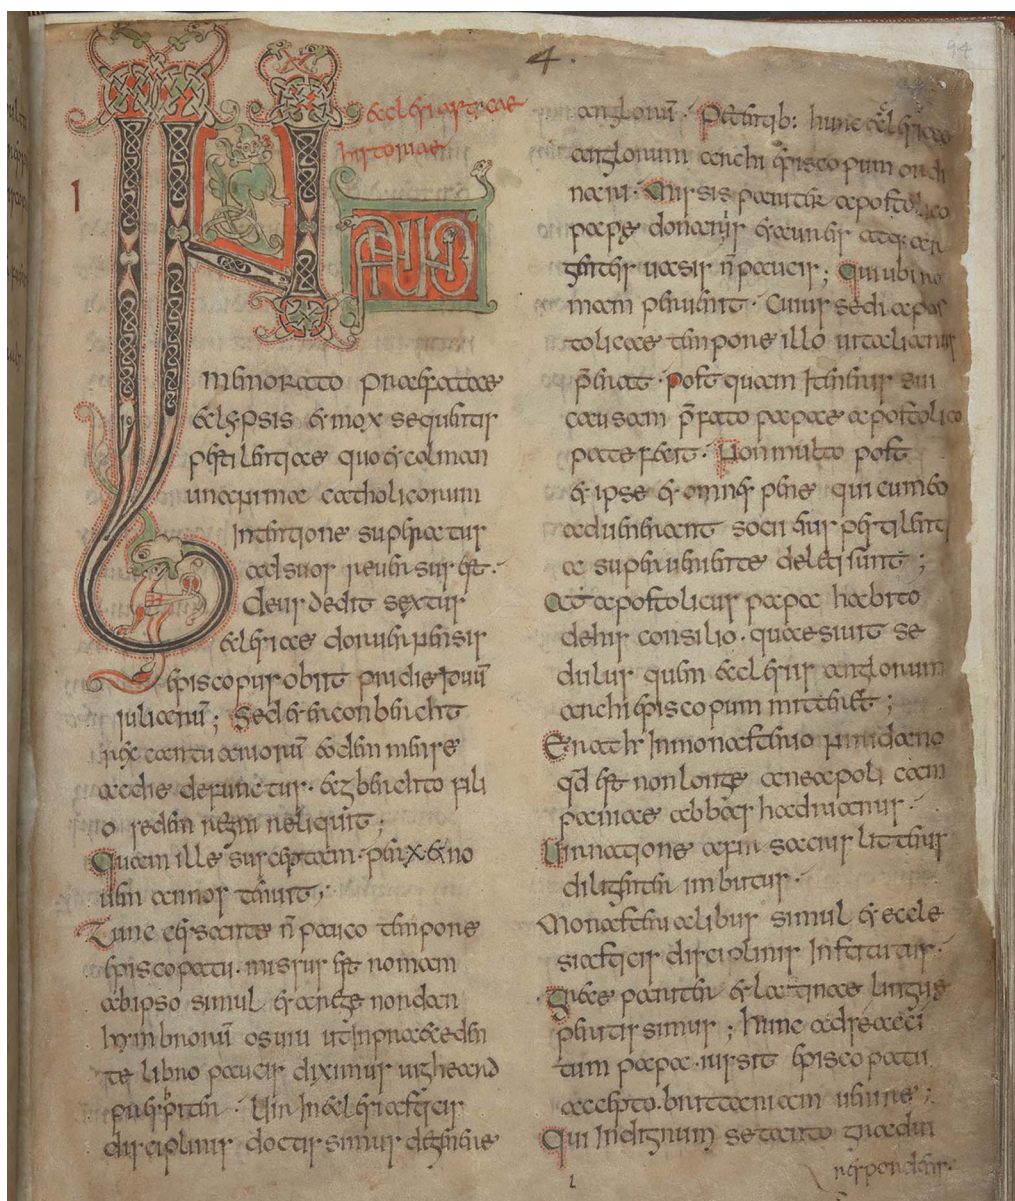 4.
94
ęcclesiasticae
historiae
I
IN ANO
memorato praefatae
eclypsis & mox sequentis
pestilentiae quo & colman
unanima catholicorum
intentione superatus
ad suos reuersus est.
deusdedit sextus
ecclesiae doruuernensis
episcopus obiit pridie iduū
iuliarū; Sed & erconberct
rex cantuariorū eodem mense
ac die defunctus. ecgbercto fili
o sedem regni reliquit;
Quam ille susceptam. per .x. & no
uem annos tenuit;
Tunc cessante n̄ pauco tempore
episcopatu. missus est romam
ab ipso simul & a rege nordan
hymbrorū osuiu ut in praeceden
te libro paucis diximus uigheard
presbiter. Uir in ecclesiasticis
disciplinis doctissimus de genere
anglorū. Petentib: hunc ecclesiae
anglorum archiepiscopum ordi
nari. Missis pariter apostolico
papę donariis & aureis atq: ar
genteis uasis n̄ paucis; Qui ubi ro
mam peruenit. Cuius sedi apos
tolicae tempore illo uitalianus
p̄erat. Post quam itineris sui
causam p̄fato papae apostolico
patefecit. Non multo post
& ipse & omnes pene qui cum eo
aduenerant socii eius pestilenti
a superueniente deleti sunt;
At apostolicus papa habito
de his consilio. quaesiuit se
dulus quem ecclesiis anglorum
archiepiscopum mitteret;
Erat hr̄ in monasterio niridano
qd̄ est non longe a neapoli cam
paniae abbas hadrianus.
Uir natione afer sacris litteris
diligenter imbutus.
Monasterialibus simul & eccle
siasticis disciplinis institutus.
grece pariter & latinae linguę
peritissimus; Hunc ad se acci
tum papa. iussit episcopatu
accepto. brittaniam uenire;
Qui indignum se tanto gradui
respondens.